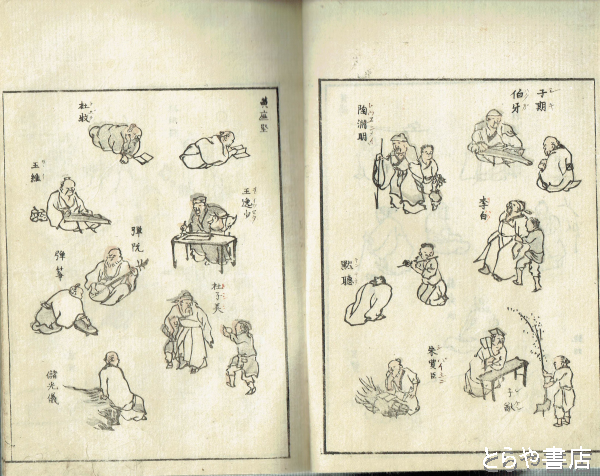 子期
伯牙
陶淵明
李白
黙聴
朱買臣
子猷
黄庭堅
杜牧
王逸少
王維
弾阮
弾箏
杜子美
儲光儀
とらや書店